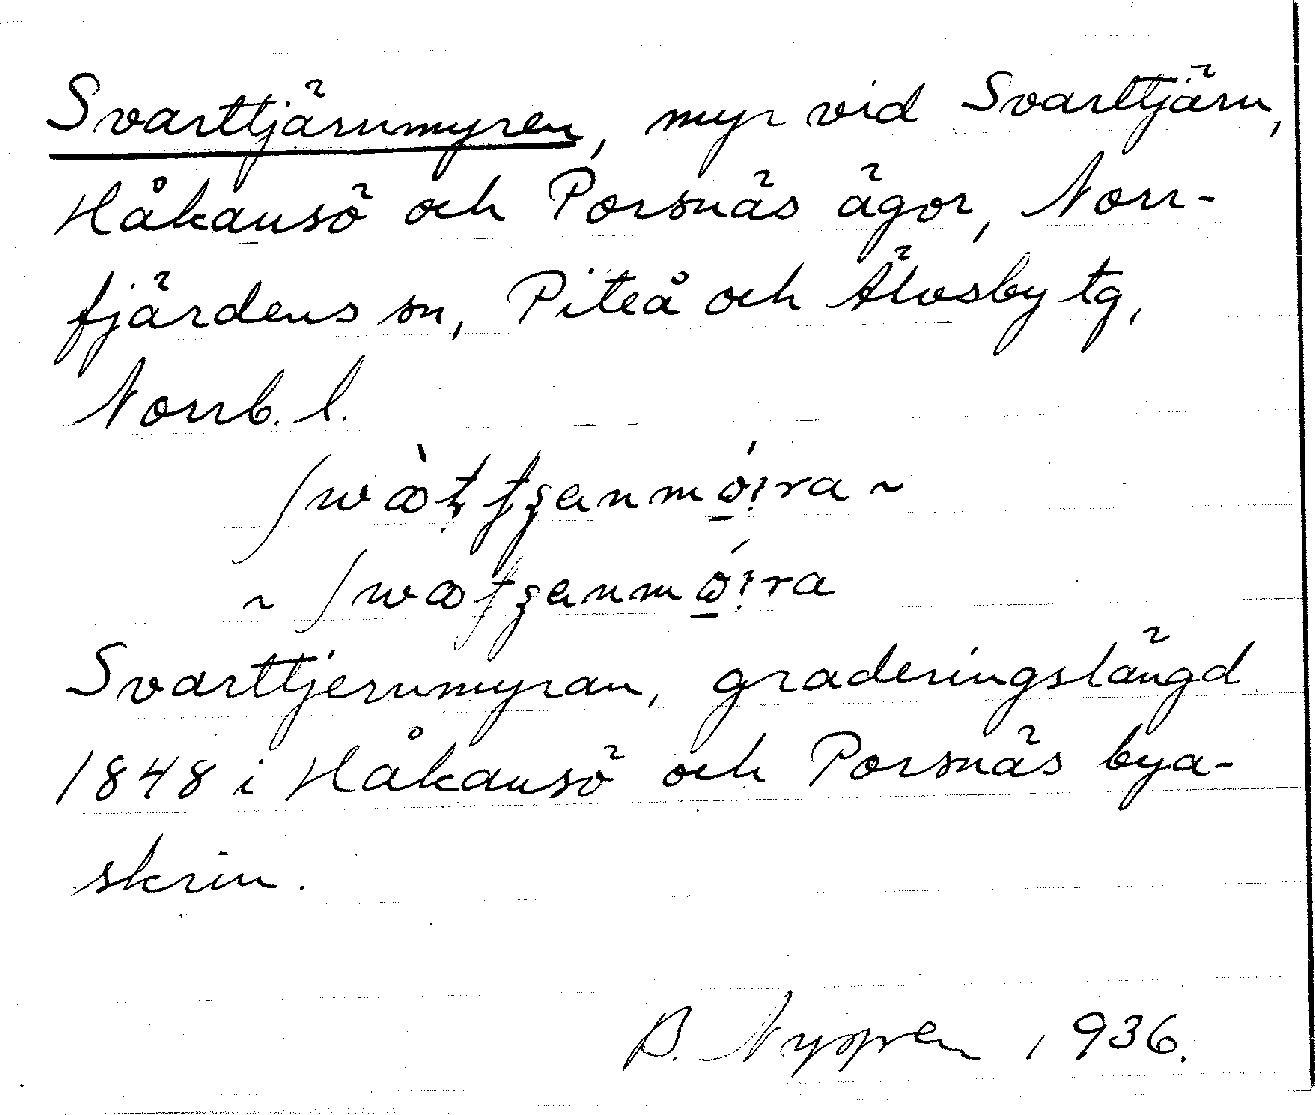 Svarttjärnmyren, myr vid Svarttjärn,
Håkansö och Porsnäs ägor, Norr-
fjärdens sn, Piteå och Älvsby tg,
Norrb. l.
~
~
Svarttjernmyran, graderingslängd
1848 i Håkansö och Porsnäs bya-
skrin.
B. Nygren 1936.